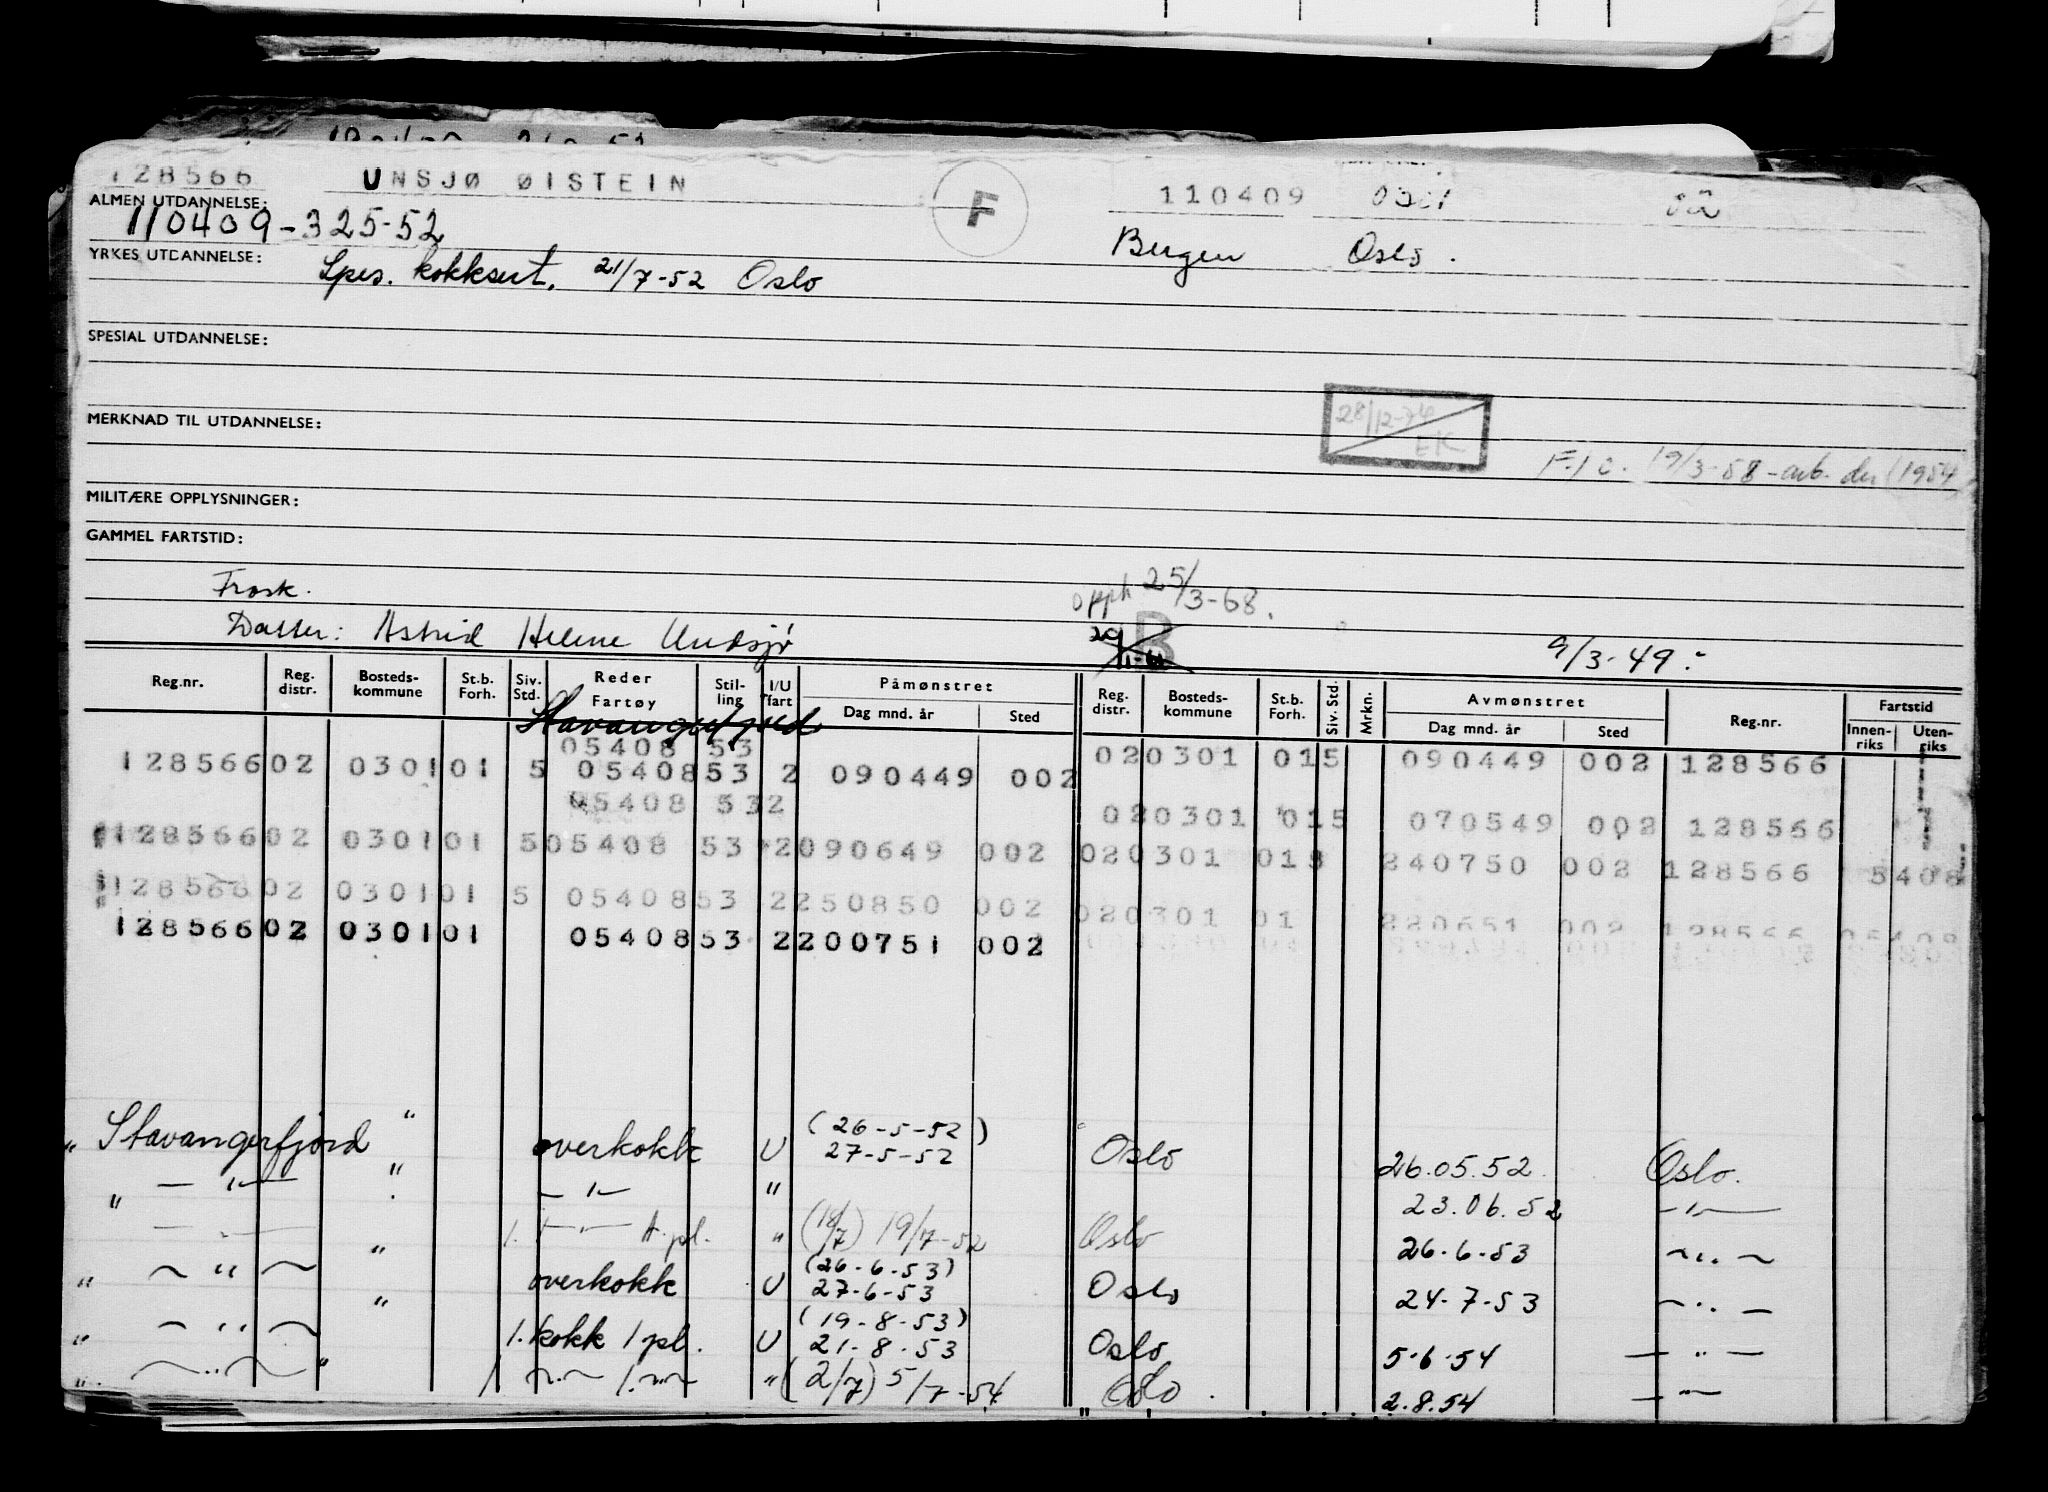 128566 UNSJØ ØISTEIN F 110409 0301 02
ALMEN UTDANNELSE:
110409-325-52 Bergen Oslo.
YRKES UTDANNELSE: Spes. kokksert. 21/7-52 Oslo
SPESIAL UTDANNELSE:
28/12-74 EK
MERKNAD TIL UTDANNELSE:
19/3-58 - arb. (1954
MILITÆRE OPPLYSNINGER:
GAMMEL FARTSTID:
Frask. opph 25/3-68.
Datter: Astrid Helene Undsjø B 9/3-49.
Reg.nr. Reg. distr. Bosteds-kommune St.b. Forh. Siv. Std. Reder Fartøy Stil-ling I/U fart Påmønstret Dag mnd. år Sted Reg. distr. Bosteds-kommune St.b. Forh. Siv. Std. Mrkn. Avmønstret Dag mnd. år Sted Reg.nr. Fartstid Innen-riks Uten-riks
Stavangerfjord
05408 53
128566 02 0301 01 5 05408 53 2 090449 002 02 0301 01 5 090449 002 128566
05408 53 2 02 0301 01 5 070549 002 128566
128566 02 0301 01 5 05408 53 2 090649 002 02 0301 01 240750 002 128566 5408
128566 02 0301 01 5 05408 53 2 250850 002 02 0301 01 220651 002 128566 05408
128566 02 0301 01 05408 53 2 200751 002
" Stavangerfjord " overkokk U (26-5-52) 27-5-52 Oslo 26.05.52 Oslo.
" — " — " — " — " 23.06.52 — " —
— " — 1. — " — A.pl. " (18/7) 19/7-52 Oslo 26-6-53 — " —
" — " — " overkokk U (26-6-53) 27-6-53 Oslo 24-7-53 — " —
" — " — " 1. kokk 1 pl. U (19-8-53) 21-8-53 Oslo 5-6-54 — " —
" — " — " 1 — " — 1. — " — " (2/7) 5/7-54 Oslo. 2.8.54 — " —